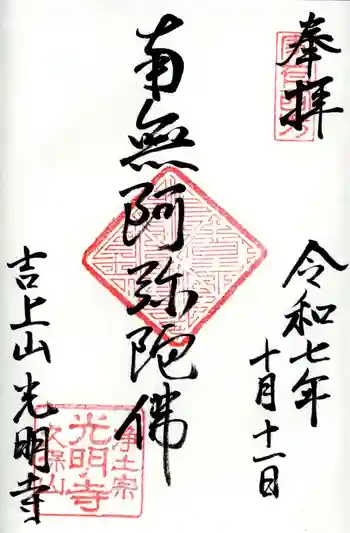 奉拝
令和七年
十月十一日
南無阿弥陀佛
吉上山光明寺
浄土宗
光明寺
久保山